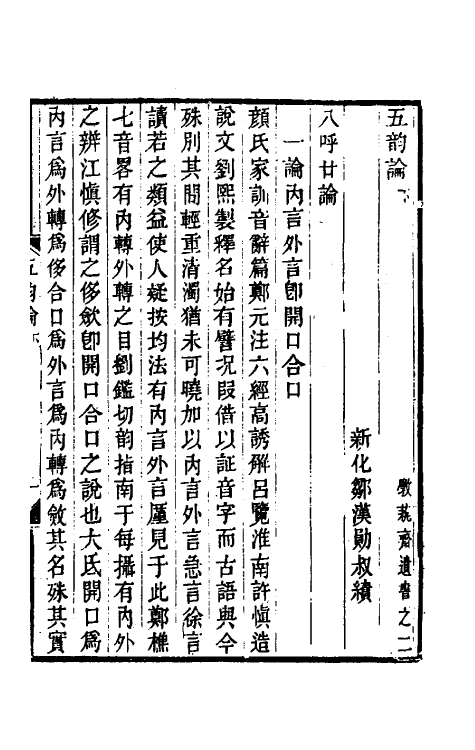 五韵論下
斅蓺齋遺書之二
新化鄒漢勛叔績
八呼廿論
一論內言外言卽開口合口
顔氏家訓音辭篇鄭元注六經高誘解呂覽淮南許慎造
說文劉熙製釋名始有譬況叚借以証音字而古語與今
殊別其間輕重清濁猶未可曉加以內言外言急言徐言
讀若之類益使人疑按均法有內言外言厪見于此鄭樵
七音畧有內轉外轉之目劉鑑切韵指南于每攝有內外
之辨江愼修謂之侈斂卽開口合口之說也大氐開口爲
內言爲外轉爲侈合口爲外言爲內轉爲斂其名殊其實
五韵論下
一